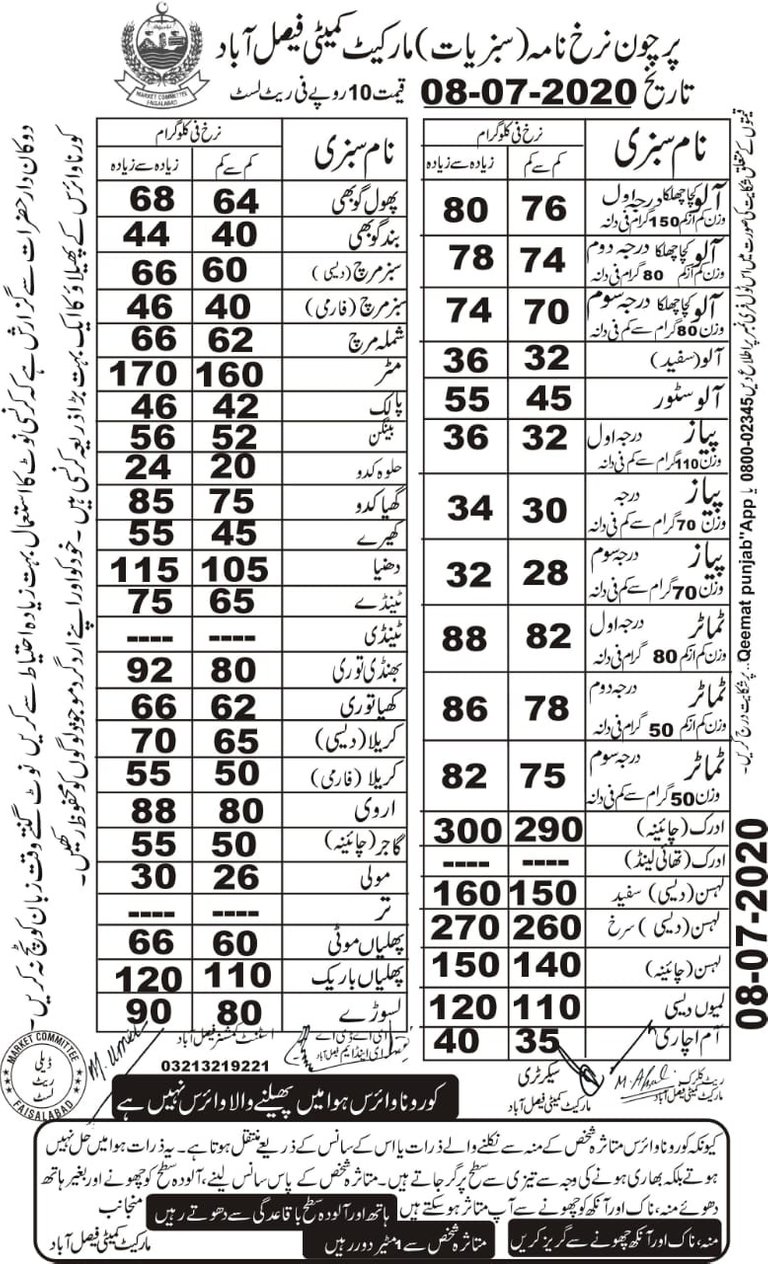 پرچون نرخ نامہ (سبزیات) مارکیٹ کمیٹی فیصل آباد
تاریخ 08-07-2020 قیمت 10 روپے فی ریٹ لسٹ
MARKET COMMITTEE
FAISALABAD
نام سبزی
نرخ فی کلوگرام
کم سے کم زیادہ سے زیادہ
آلو کچا چھلکا درجہ اول 76 80
وزن کم از کم 150 گرام فی دانہ
آلو کچا چھلکا درجہ دوم 74 78
وزن کم از کم 80 گرام فی دانہ
آلو کچا چھلکا درجہ سوم 70 74
وزن 80 گرام سے کم فی دانہ
آلو (سفید) 32 36
آلو سٹور 45 55
پیاز درجہ اول 32 36
وزن 110 گرام سے کم فی دانہ
پیاز درجہ 30 34
وزن 70 گرام سے کم فی دانہ
پیاز درجہ سوم 28 32
وزن 70 گرام سے کم فی دانہ
ٹماٹر درجہ اول 82 88
وزن کم از کم 80 گرام فی دانہ
ٹماٹر درجہ دوم 78 86
وزن کم از کم 50 گرام فی دانہ
ٹماٹر درجہ سوم 75 82
وزن 50 گرام سے کم فی دانہ
ادرک (چائینہ) 290 300
ادرک (تھائی لینڈ) ---- ----
لہسن (دیسی) سفید 150 160
لہسن (دیسی) سرخ 260 270
لہسن (چائینہ) 140 150
لیموں دیسی 110 120
آم اچاری 35 40
نام سبزی
نرخ فی کلوگرام
کم سے کم زیادہ سے زیادہ
پھول گوبھی 64 68
بند گوبھی 40 44
سبز مرچ (دیسی) 60 66
سبز مرچ (فارمی) 40 46
شملہ مرچ 62 66
مٹر 160 170
پالک 42 46
بینگن 52 56
حلوہ کدو 20 24
گھیا کدو 75 85
کھیرے 45 55
دھنیا 105 115
ٹینڈے 65 75
ٹینڈی ---- ----
بھنڈی توری 80 92
گھیا توری 62 66
کریلا (دیسی) 65 70
کریلا (فارمی) 50 55
اروی 80 88
گاجر (چائینہ) 50 55
مولی 26 30
تر ---- ----
پھلیاں موٹی 60 66
پھلیاں باریک 110 120
لسوڑے 80 90
قیمتوں کے متعلق شکایت کی صورت میں اس ٹول فری نمبر پر اطلاع دیں 0800-02345 یا Qeemat punjab"App پر شکایت درج کریں۔
08-07-2020
کورونا وائرس کے پھیلاؤ کا ایک بہت بڑا ذریعہ کرنسی ہیں۔ خود کو اور اپنے ارد گرد موجود لوگوں کو محفوظ رکھیں۔
دوکاندار حضرات سے گزارش ہے کہ کرنسی نوٹ کا استعمال بہت زیادہ احتیاط سے کریں نوٹ گنتے وقت زبان کو ٹچ نہ کریں۔
ریٹ کلرک
مارکیٹ کمیٹی فیصل آباد
سیکرٹری
مارکیٹ کمیٹی فیصل آباد
ای اے ڈی اے
ای اینڈ ایم فیصل آباد
اسسٹنٹ کمشنر فیصل آباد
03213219221
M. Umer
MARKET COMMITTEE
ڈیلی
ریٹ
لسٹ
FAISALABAD
کورونا وائرس ہوا میں پھیلنے والا وائرس نہیں ہے
کیونکہ کورونا وائرس متاثرہ شخص کے منہ سے نکلنے والے ذرات یا اس کے سانس کے ذریعے منتقل ہوتا ہے۔ یہ ذرات ہوا میں حل نہیں
ہوتے بلکہ بھاری ہونے کی وجہ سے تیزی سے سطح پر گر جاتے ہیں۔ متاثرہ شخص کے پاس سانس لینے، آلودہ سطح کو چھونے اور بغیر ہاتھ
دھوئے منہ، ناک اور آنکھ کو چھونے سے آپ متاثر ہو سکتے ہیں ہاتھ اور آلودہ سطح باقاعدگی سے دھوتے رہیں منجانب
منہ، ناک اور آنکھ چھونے سے گریز کریں متاثرہ شخص سے 1 میٹر دور رہیں مارکیٹ کمیٹی فیصل آباد